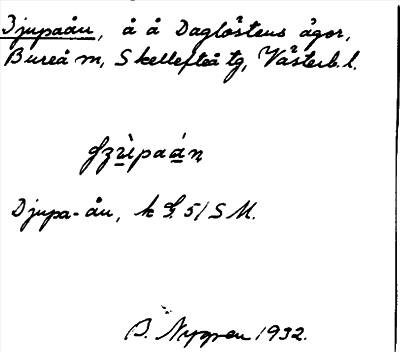 Djupaån, å å Daglöstens ägor,
Bureå m, Skellefteå tg, Västerb. l.
Djupa-ån, k G. 51 SM.
B. Nygren 1932.